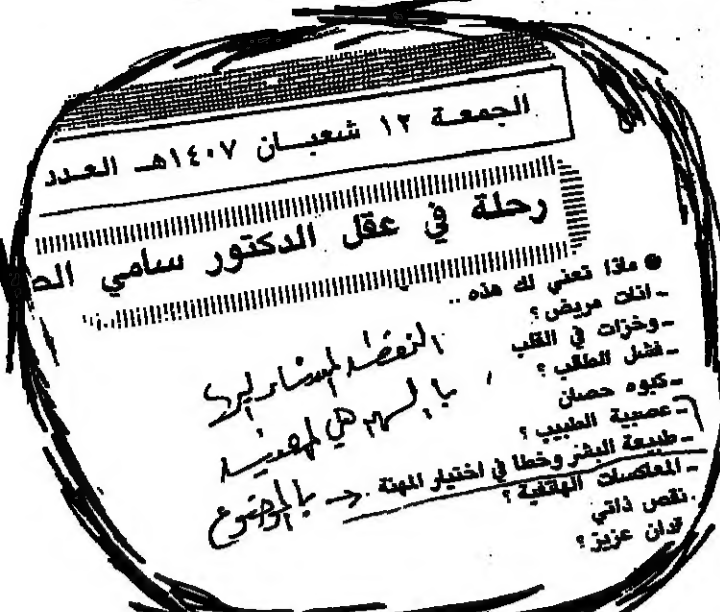 الجمعــة ١٢ شعبــان ١٤٠٧هـ العـدد
رحلة في عقل الدكتور سامي
● ماذا تعني لك هذه ..
ـ انات مريض ؟
ـ وخزات في القلب
ـ فشل الطالب ؟
ـ كبوه حصان
ـ عصبية الطبيب ؟
ـ طبيعة البشر وخطا في اختيار المهنة .
ـ المعاكسات الهاتفية ؟
نقص ذاتي
عزيز ؟
النقطة المشار إليها
بالسهم هي المعنية
بالموضوع